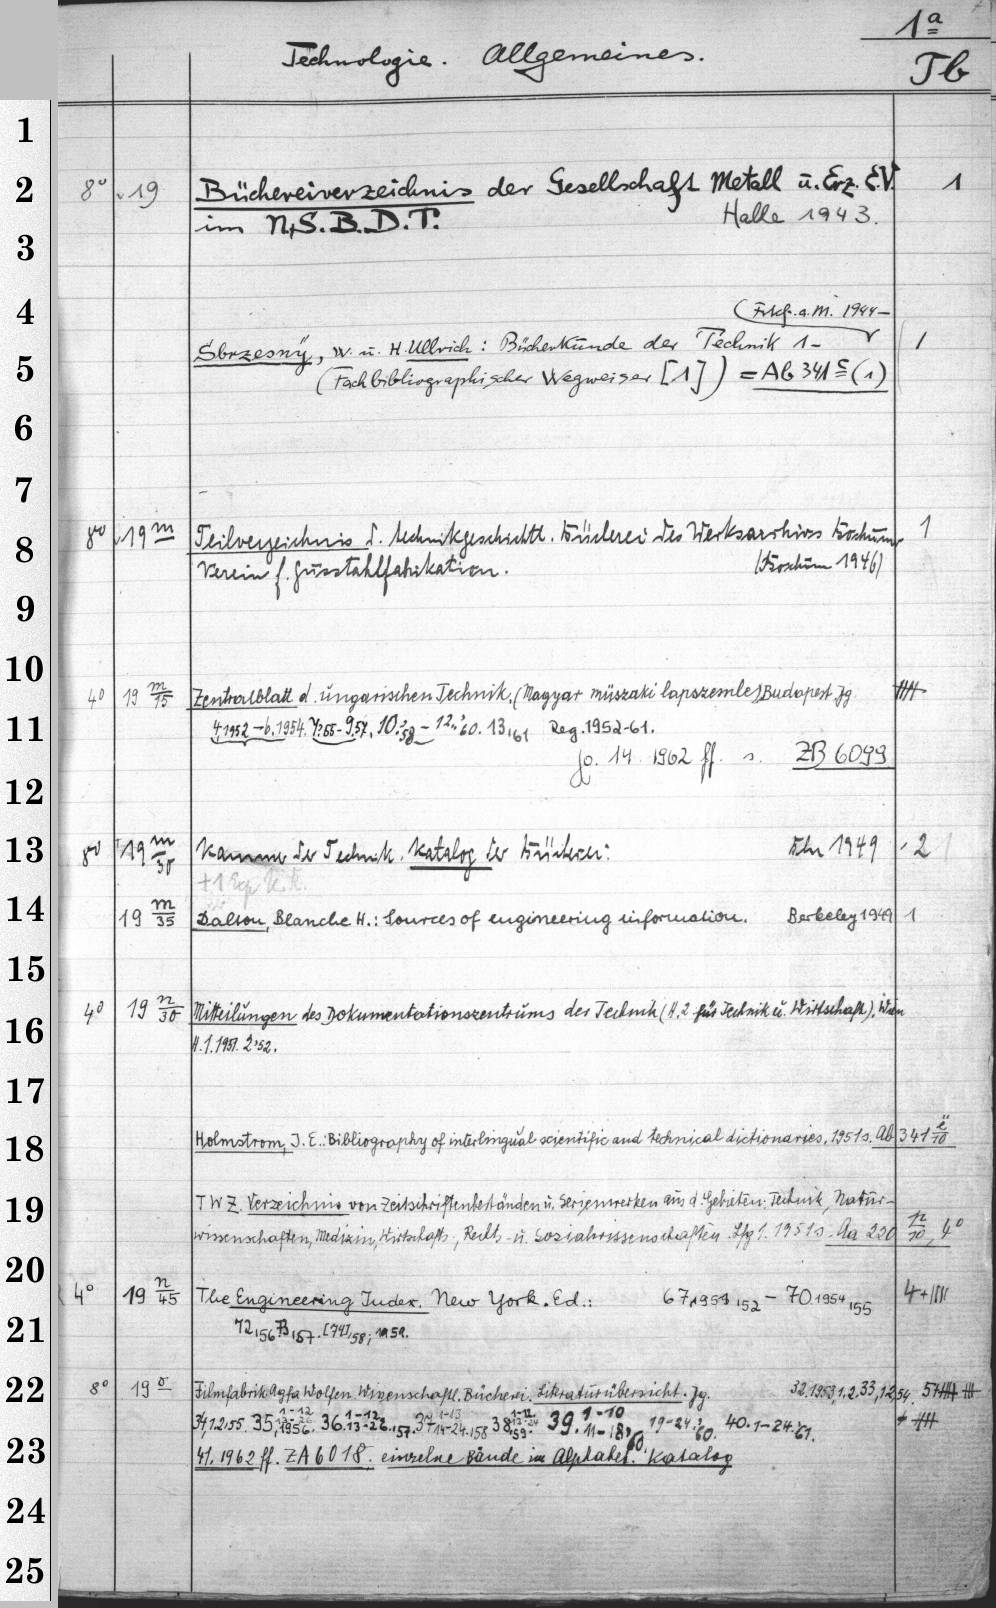 1a
Technologie. Allgemeines.
Tb
1
2 8° 19 Büchereiverzeichnis der Gesellschaft Metall u. Erz. E.V. 1
im N.S.B.D.T. Halle 1943.
3
4 (Frkf. a. M. 1944-
Sbrzesny, W. u. H. Ullrich: Bücherkunde der Technik 1- 1
5 (Fachbibliographischer Wegweiser [1]) = Ab 341 c (1)
6
7
8 8° 19 m Teilverzeichnis d. technikgeschichtl. Bücherei des Werksarchivs Bochum 1
Verein f. Gusstahlfabrikation. (Bochum 1946)
9
10
4° 19 m/15 Zentralblatt d. ungarischen Technik. (Magyar müszaki lapszemle) Budapest Jg.
11 4,1952-6,1954. 7,55-9,57, 10,58-12,60. 13,61 Reg. 1952-61.
Jg. 14 1962 ff. s. ZB 6099
12
13 8° 19 m/30 Kammer der Technik. Katalog der Bücherei: 1949 2
+1 Exp.
14 19 m/35 Dalton, Blanche H.: Sources of engineering information. Berkeley 1949 1
15
16 4° 19 n/30 Mitteilungen des Dokumentationszentrums der Technik (H.2 für Technik u. Wirtschaft). Wien
H.1.1951. 2,52.
17
18 Holmstrom, J. E.: Bibliography of interlingual scientific and technical dictionaries. 1951 s. Ab 341 e/10
19 TWZ Verzeichnis von Zeitschriftenbeständen u. Serienwerken aus d. Gebieten: Technik, Natur-
wissenschaften, Medizin, Wirtschafts-, Rechts- u. Sozialwissenschaften. Lfg 1. 1951 s. Aa 220 n/10, 4°
20 4° 19 n/45 The Engineering Index. New York. Ed.: 67,1951,52 - 70.1954,55 4+
21 72,56 73,57. [74],58; 1959.
22 8° 19 o Filmfabrik Agfa Wolfen. Wissenschaftl. Bücherei. Literaturübersicht. Jg. 32,1953,1,2.33,1,2,54. 5
34,1.2,55. 35, 1956. 36. 1-12 13-26,57. 14-24,58 38, 59. 39. 1-10 11-18, 19-24,60. 40. 1-24,61.
23 41. 1962 ff. ZA 6018. einzelne Bände im Alphabet. Katalog
24
25